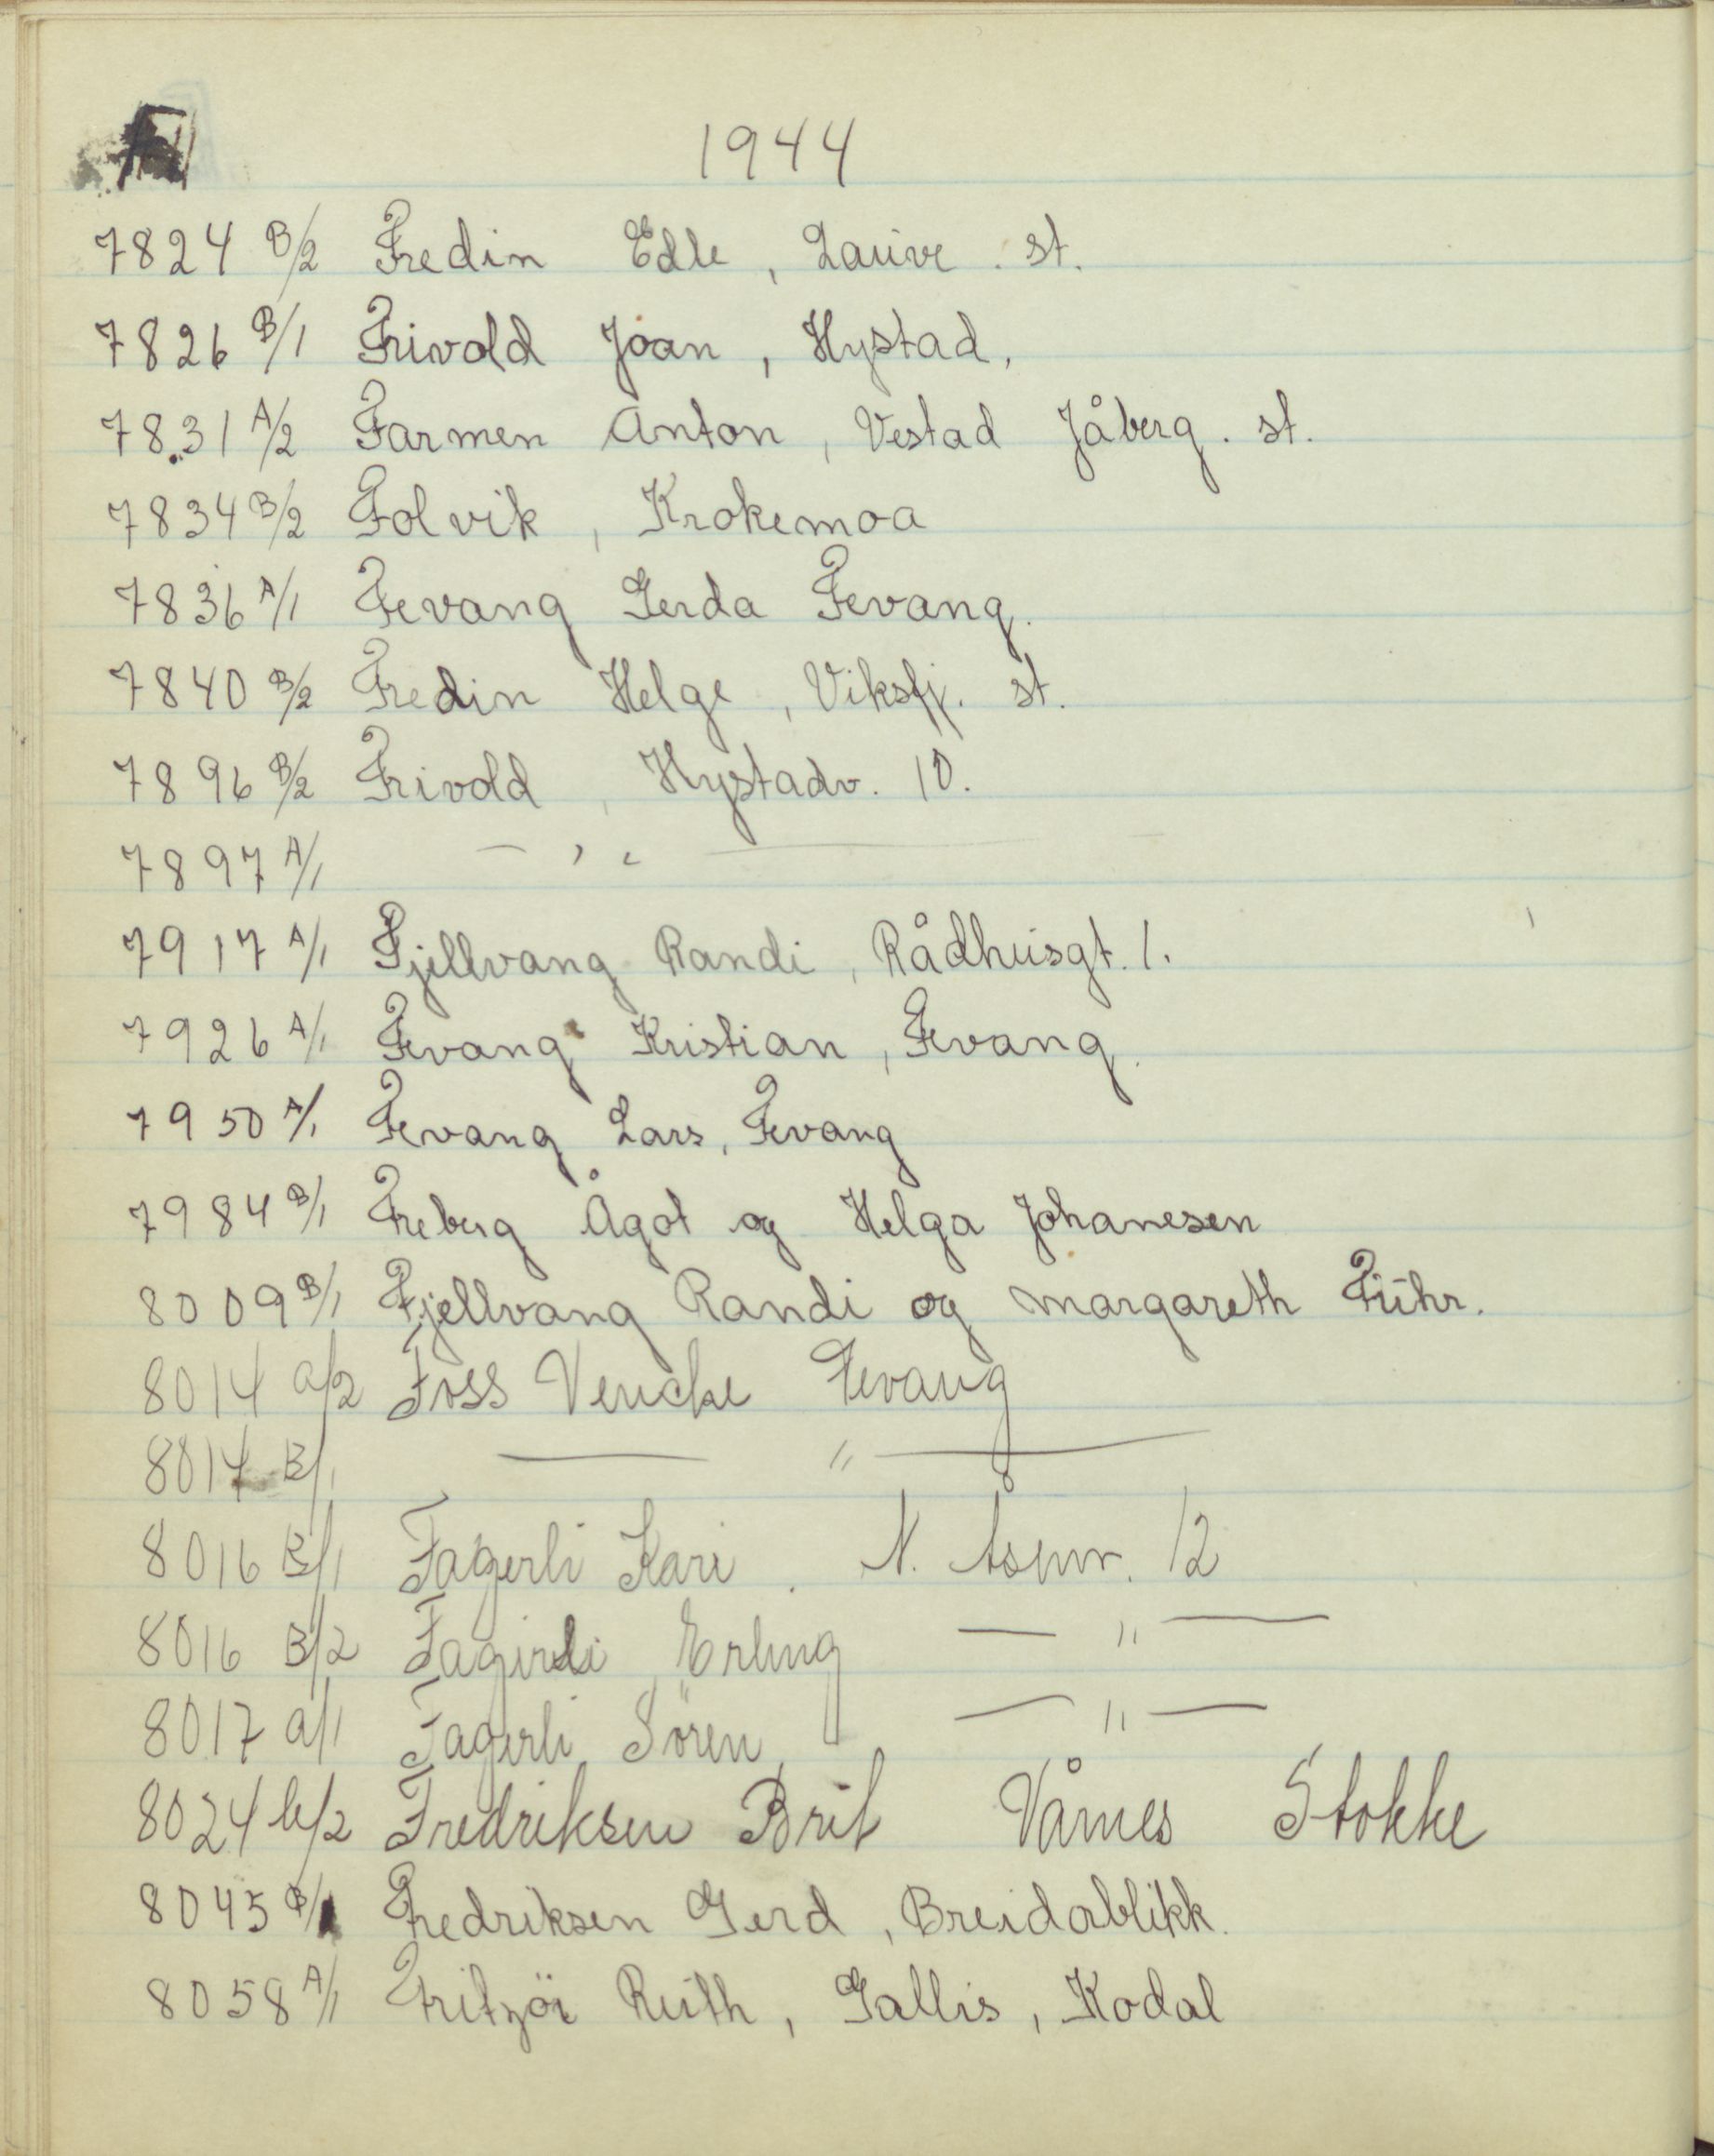 1944
7824 B/2 Fredin Edle, Lauve. st.
7826 B/1 Frivold Joan, Hystad,
7831 A/2 Farmen Anton, Vestad Jåberg. st.
7834 B/2 Folvik, Krokemoa
7836 A/1 Fevang Gerda Fevang.
7840 B/2 Fredin Helge, Viksfj. st.
7896 B/2 Frivold, Hystadv. 10.
7897 A/1 — , , —
7917 A/1 Fjellvang Randi, Rådhusgt. 1.
7926 A/1 Fevang Kristian, Fevang.
7950 A/1 Fevang Lars, Fevang
7984 B/1 Freberg Ågot og Helga Johanesen
8009 B/1 Fjellvang Randi og Margareth Führ.
8014 a/2 Foss Vencke Fevang
8014 B/1 — " —
8016 B/1 Fagerli Kari. N. 12
8016 B/2 Fagerli, Erling — " —
8017 a/1 Fagerli, Sören, — " —
8024 b/2 Fredriksen Brit Vårnes Stokke
8045 B/1 Fredriksen Gerd, Breidablikk.
8058 A/1 Fritzöi Ruth, Gallis, Kodal